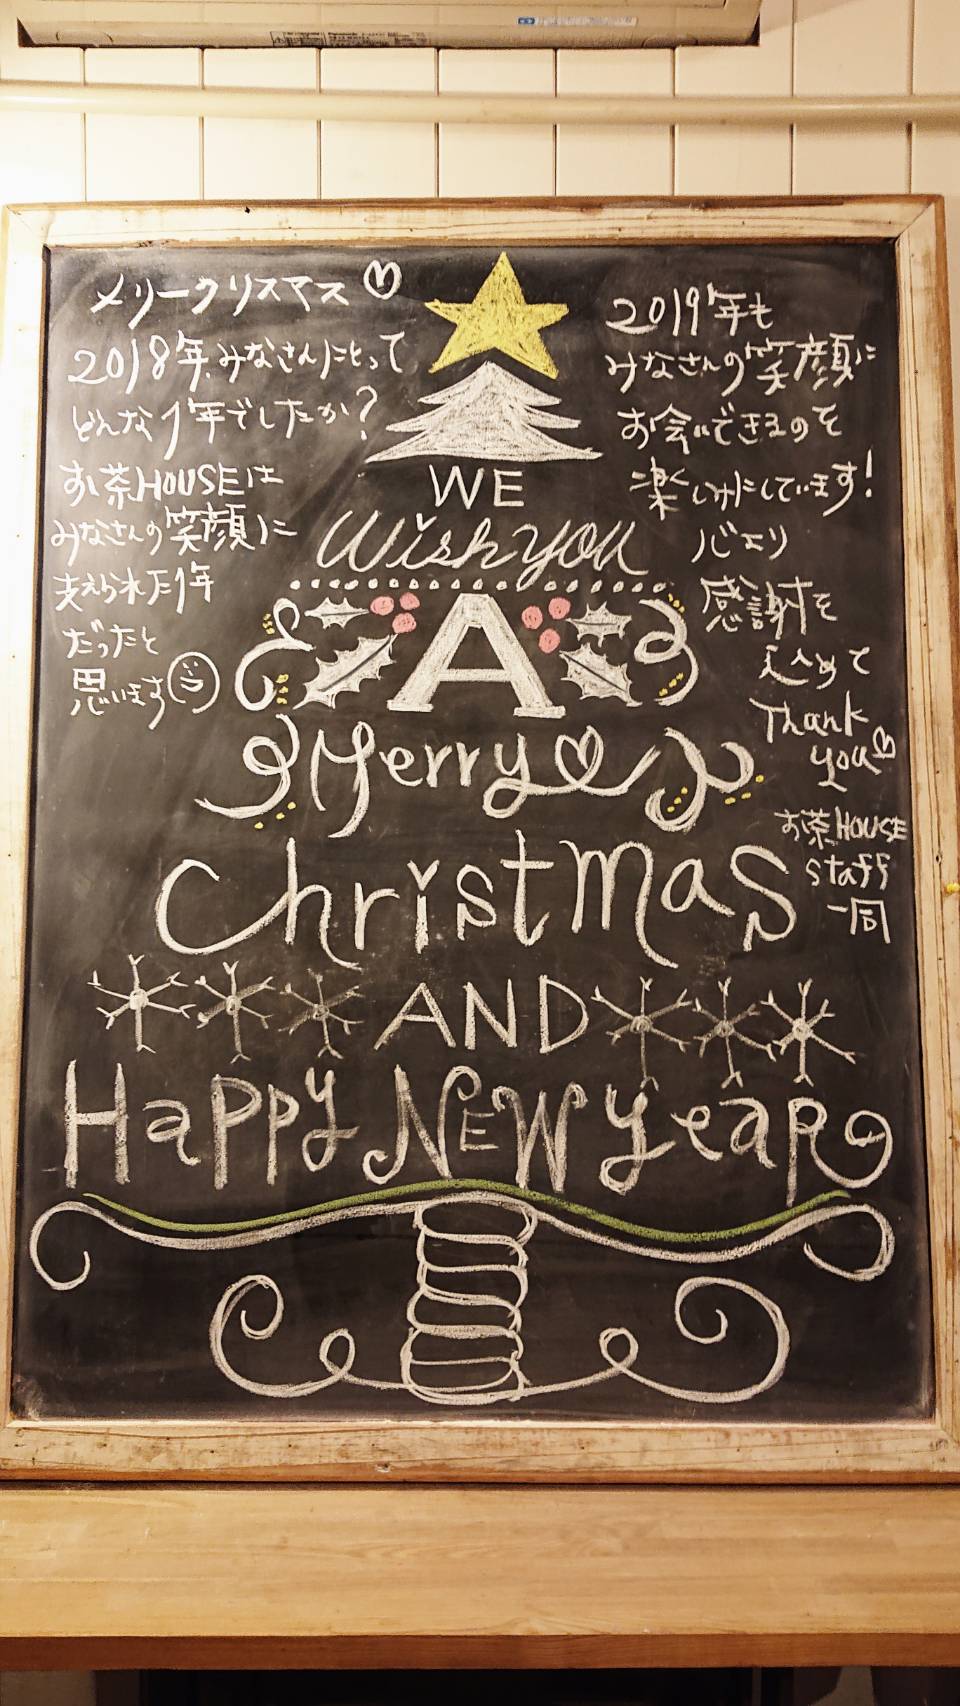 メリークリスマス
2018年、みなさんにとって
どんな1年でしたか?
お茶HOUSEは
みなさんの笑顔に
支えられた1年
だったと
思います
WE
Wish you
A
Merry
Christmas
AND
Happy NEW year
2019年も
みなさんの笑顔に
お会いできるのを
楽しみにしています!
心より
感謝を
込めて
Thank
you
お茶HOUSE
staff
一同